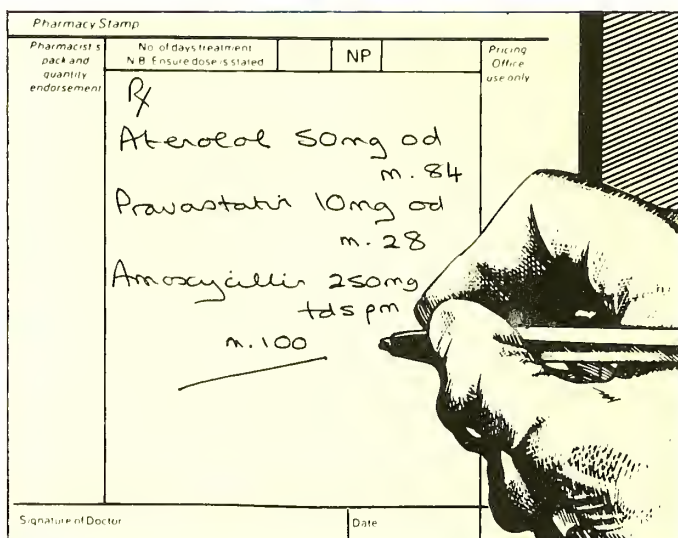 Pharmacy Stamp
Pharmacist's pack and quantity endorsement
No. of days treatment
N.B. Ensure dose is stated
NP
Pricing Office use only
Rx
Atenolol 50mg od
m. 84
Pravastatin 10mg od
m. 28
Amoxycillin 250mg
tds pm
m. 100
Signature of Doctor
Date